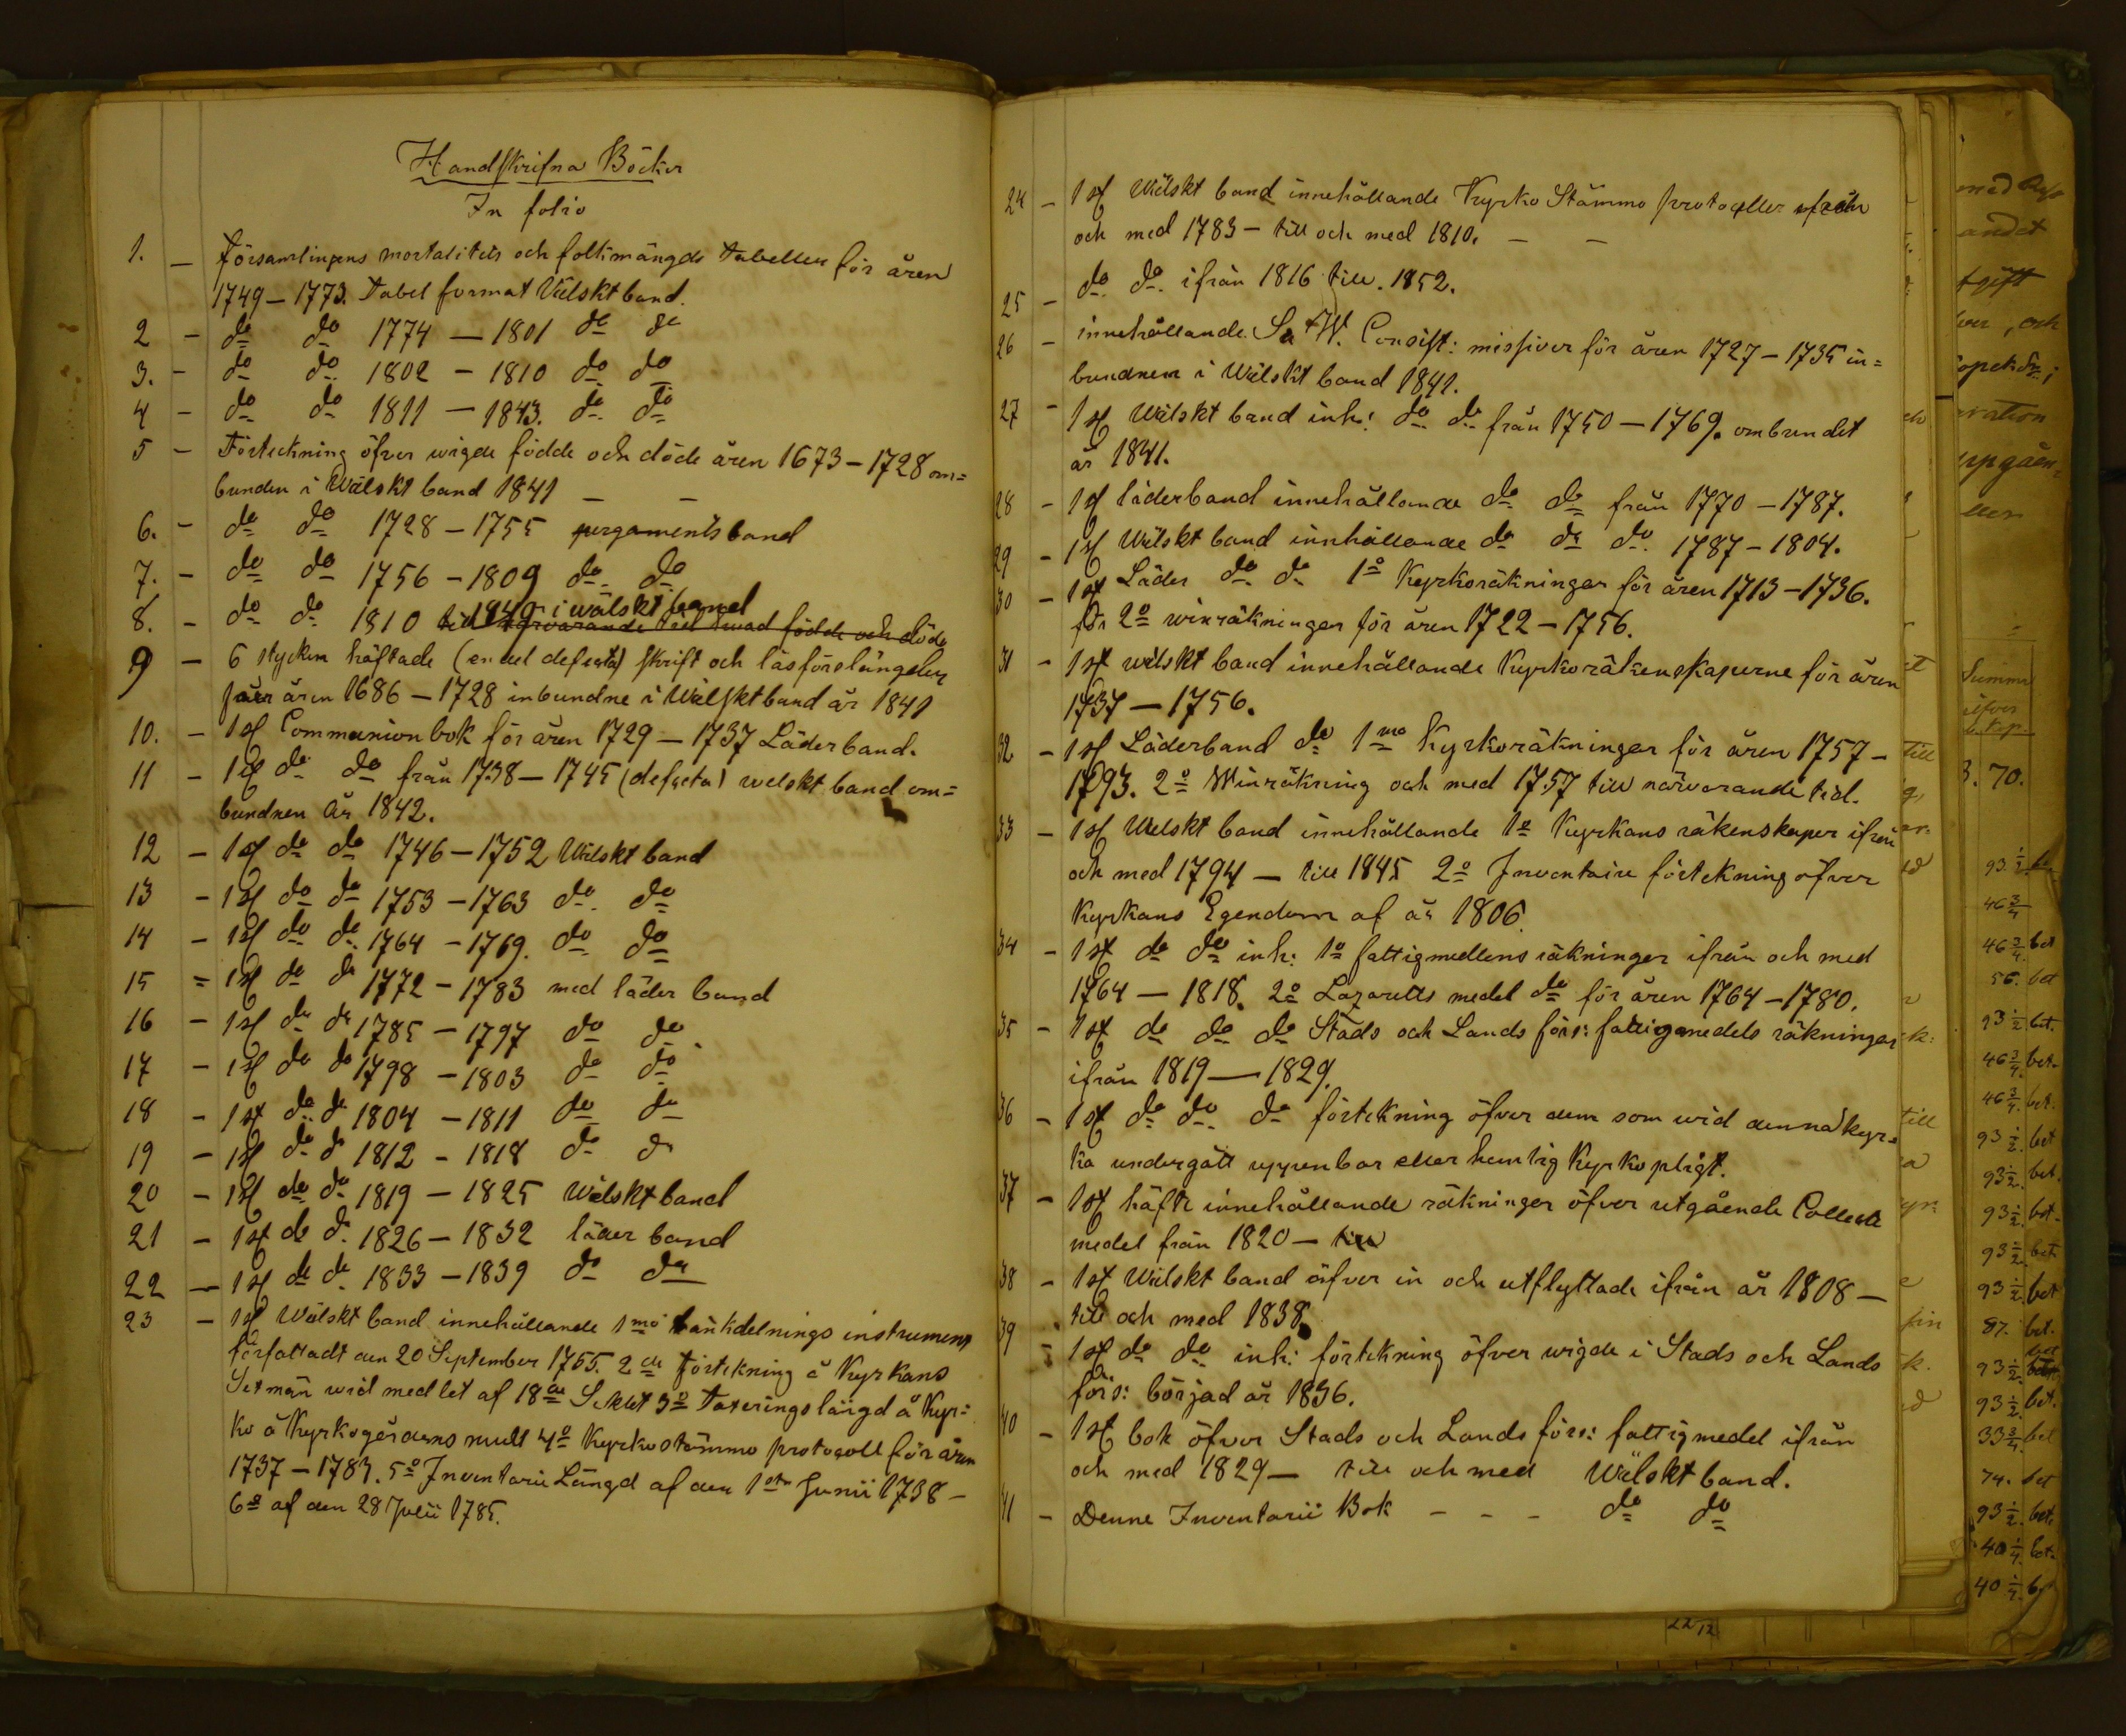 Handskrifna Böcker
In folio
1. – Församlingens mortalitets och folkmängds tabeller för åren
1749 – 1773. Tabel format Välskt band.
2 – do do 1774 – 1801 do do
3. – do do 1802 – 1810 do do
4 – do do 1811 – 1843. do do
5 – Förteckning öfver wigde födde och döde åren 1673 – 1728 om=
bunden i Wälskt band 1841 – –
6. – do do 1728 – 1755 pergaments band
7. – do do 1756 – 1809 do do
1840 i wälskt band
8. – do do 1810 till närvarande tid födde och döde
9 – 6 stycken häftade (en del defecta) skrift och läsförslängder
åren 1686 – 1728 inbundne i Wälskt band år 1841
10. – 1 st Communion bok för åren 1729 – 1737 Läderband.
11 – 1 st do do från 1738 – 1745 (defecta) welskt band om=
bundnen år 1842.
12 – 1 st do do 1746 – 1752 Wälskt band
13 – 1 st do do 1753 – 1763 do do
14 – 1 st do do 1764 – 1769. do do
15 = 1 st do do 1772 – 1783 med läder band
16 – 1 st do do 1785 – 1797 do do.
17 – 1 st do do 1798 – 1803 do do
18 – 1 st do do 1804 – 1811 do do
19 – 1 st do do 1812 – 1818 do do
20 – 1 st do do 1819 – 1825 Wälskt band
21 – 1 st do do 1826 – 1832 läder band
22 – 1 st do do 1833 – 1839 do do
23 – 1 st Wälskt band innehållande 1mo bänkdelnings instrument
författadt den 20 September 1755. 2de förtekning å Kyrkans
Sexmän wid medlet af 18de Seklet 3o Taxerings längd å Kyr=
ko å Kyrkogårdens mull 4o Kyrkostämmo protocoll för åren
1737 – 1783. 5o Inventarii Längd af den 1sta Junii 1738 –
6o af den 28 Julii 1785.
24 – 1 st Wälskt band innehållande Kyrko Stämmo protocoller ifrån
och med 1783 – till och med 1810. – –
25 – do do. ifrån 1816 till. 1852.
26 – innehållande Consist: missiver för åren 1727 – 1735 in=
bundnen i Wälskt band 1841.
27 – 1 st Wälskt band inh: do do från 1750 – 1769. ombundet
år 1841.
28 – 1 st läderband innehållande do do från 1770 – 1787.
29 – 1 st Wälskt band innhållande do do do. 1787 – 1804.
30 – 1 st Läder do do 1o Kyrkoräkningar för åren 1713 – 1736.
för 2o winräkningar för åren 1722 – 1756.
31 – 1 st wälskt band innehållande Kyrkoräkenskaperne för åren
1737 – 1756.
32 – 1 st Läderband do 1mo Kyrkoräkningar för åren 1757 –
1793. 2o Winräkning och med 1757 till närvarande tid.
33 – 1 st Wälskt band innehållande 1o Kyrkans räkenskaper ifrån
och med 1794 – till 1845 2o Inventarie förtekning öfver
Kyrkans Egendom af år 1806.
34 – 1 st do do inh: 1o fattigmedlens räkningar ifrån och med
1764 – 1818. 2o Lazaretts medel do för åren 1764 – 1780.
35 – 1 st do do do Stads och Lands förs: fattigmedels räkningar
ifrån 1819 – 1829.
36 – 1 st do do do förtekning öfver dem som wid denna kyr=
ka undergått uppenbar eller hemlig Kyrkoplikt.
37 – 1 st häfte innehållande räkningar öfver utgående Collect
medel från 1820 – till
38 – 1 st Wälskt band öfver in och utflyttade ifrån år 1808 –
till och med 1838.
39 – 1 st do do inh: förtekning öfver wigde i Stads och Lands
förs: började år 1836.
40 – 1 st bok öfver Stads och Lands förs: fattigmedel ifrån
och med 1829 – till och med Wälskt band.
41 – Denne Inventarii Bok – – – do do
andet
tgift
och
Summa
3. 70.
93 1/2
46 3/4
46 3/4 bet
56. bet
93 1/2 bet.
46 3/4 bet.
46 3/4 bet.
93 1/2 bet
93 1/2 bet.
93 1/2 bet.
93 1/2 bet
93 1/2 bet
87. bet.
93 1/2 bet
93 1/2 bet.
33 3/4 bet
74. bet
93 1/2 bet.
40 1/4 bet.
40 1/4